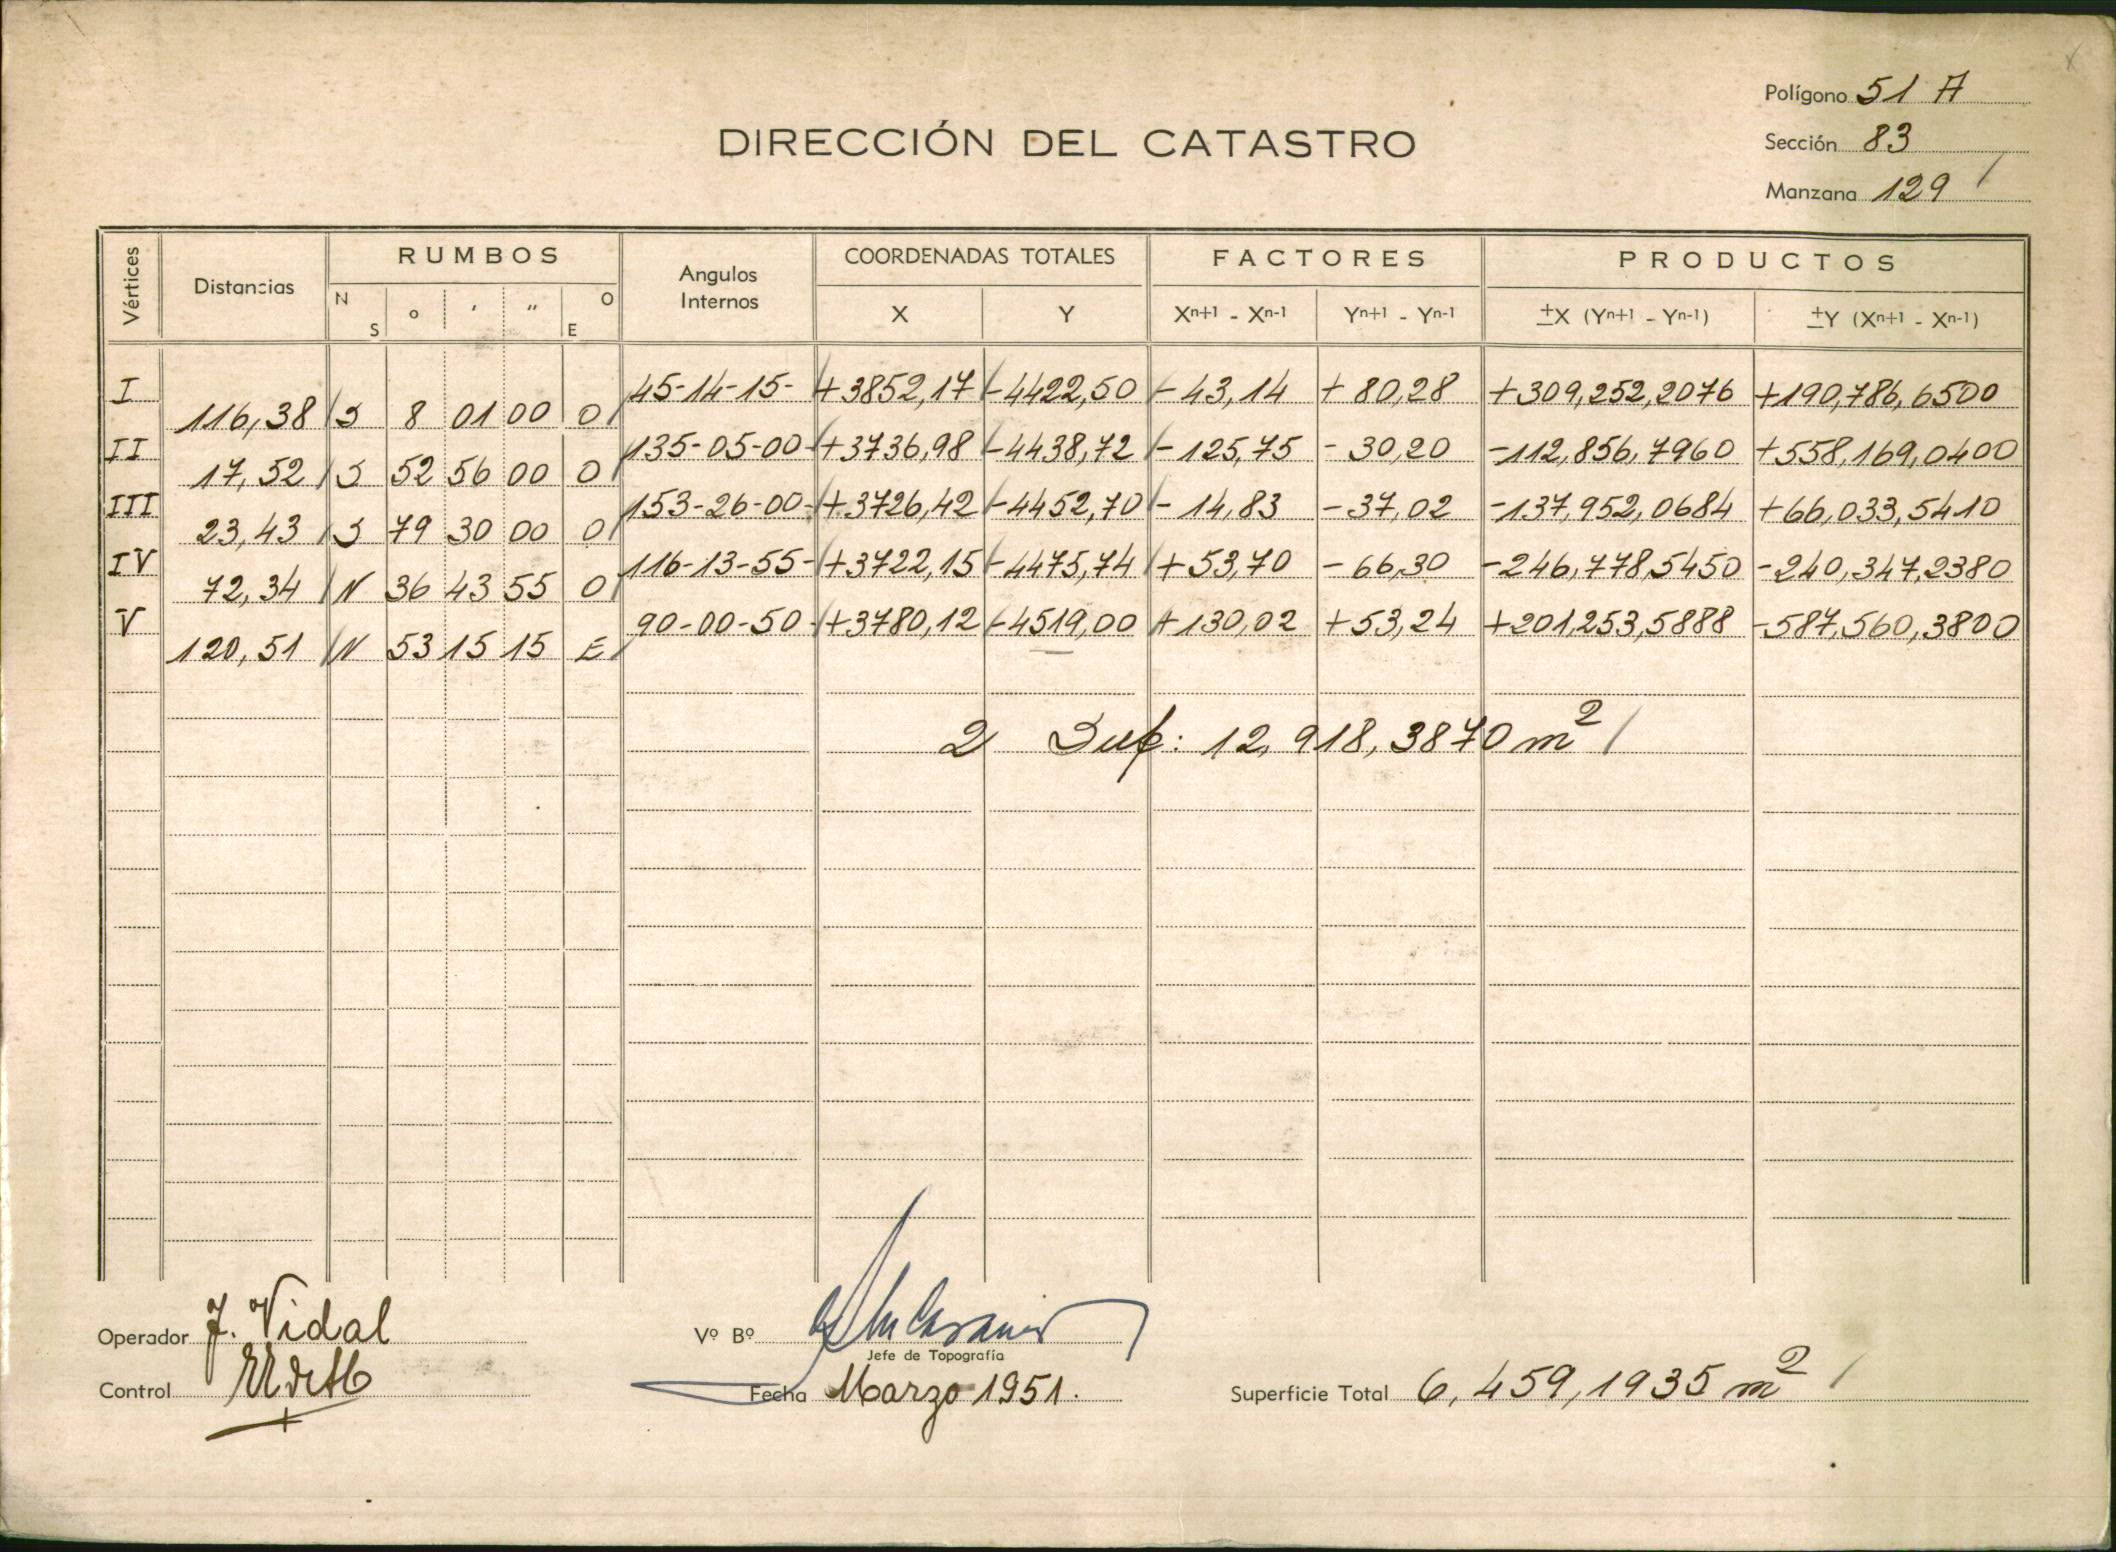 Polígono 51 A
DIRECCIÓN DEL CATASTRO
Sección 83
Manzana 129
Vértices Distancias RUMBOS Angulos Internos COORDENADAS TOTALES FACTORES PRODUCTOS
N S ° ' " O E X Y Xn+1 - Xn-1 Yn+1 - Yn-1 ±X (Yn+1 - Yn-1) ±Y (Xn+1 - Xn-1)
I 45-14-15- +3852,17 -4422,50 -43,14 +80,28 +309,252,2076 +190,786,6500
116,38 S 8 01 00 O
II 135-05-00- +3736,98 -4438,72 -125,75 -30,20 -112,856,7960 +558,169,0400
17,52 S 52 56 00 O
III 153-26-00- +3726,42 -4452,70 -14,83 -37,02 -137,952,0684 +66,033,5410
23,43 S 79 30 00 O
IV 116-13-55- +3722,15 -4475,74 +53,70 -66,30 -246,778,5450 -240,347,2380
72,34 N 36 43 55 O
V 90-00-50- +3780,12 -4519,00 +130,02 +53,24 +201,253,5888 -587,560,3800
120,51 N 53 15 15 E
2 Sup: 12,918,3870 m²
Operador J. Vidal Vº Bº
Jefe de Topografía
Control Fecha Marzo 1951. Superficie Total 6,459,1935 m²